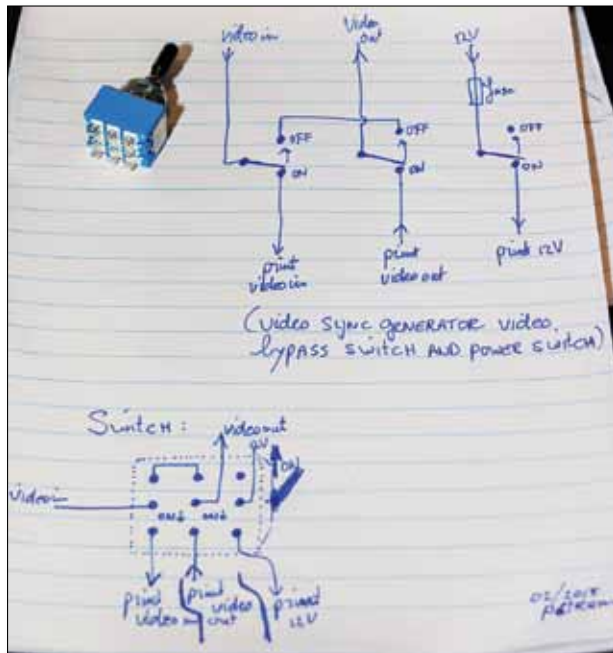 video in
Video
out
12V
fuse
OFF
OFF
OFF
ON
ON
ON
print
video in
print
video out
print 12V
(video SYNC GENERATOR VIDEO
bypass SWITCH AND POWER SWITCH)
SwitcH :
video out
video in
ON↓
ON↓
print
video in
print
video
out
print
12V
02/2015